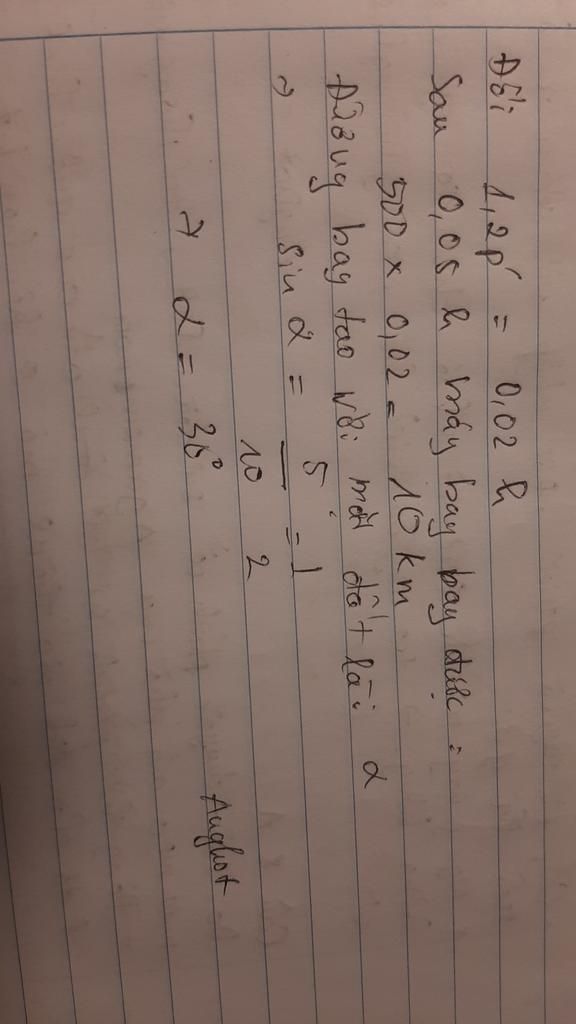 Đổi 1,2p' = 0,02 h
Sau 0,05 h máy bay bay được :
500 x 0,02 = 10 km
Đường bay tạo với mặt đất là: α
→ sin α = 5/10 = 1/2
→ α = 30°
Aughot